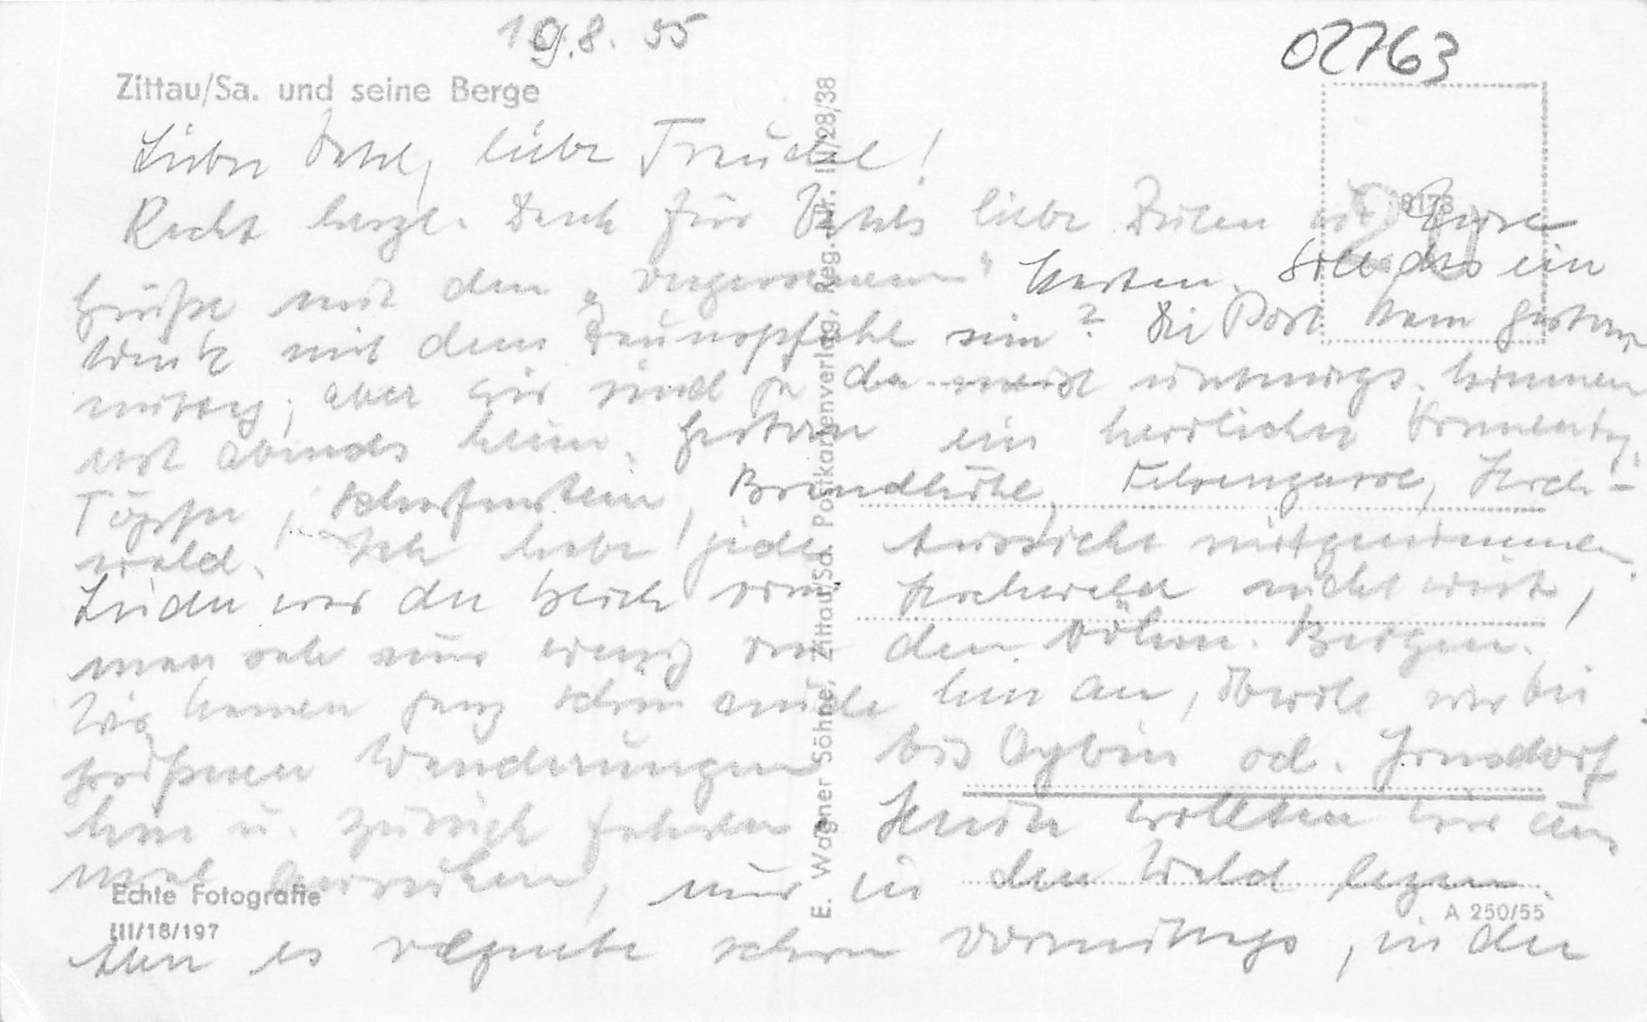 19.8.55
02763
Zittau/Sa. und seine Berge
Lieber Vati, liebe Traudel!
Recht herzl. Dank für Vatis liebe Zeilen und Eure
Grüße mit den „vergessenen“ Karten. Soll das ein
Wink mit dem Zaunspfahl sein? Die Post kam gestern
mittag, aber wir sind ja da meist unterwegs, kommen
erst abends heim. Gestern ein herrlicher Sonnentag,
Töpfer, Scharfenstein, Brandhöhe, Felsengasse, Hoch-
wald. Ich habe jede Aussicht mitgenommen.
Leider war der Blick vom Hochwald nicht weit,
man sah nur wenig von den böhm. Bergen.
Wir kamen ganz schön müde hier an, obwohl wir bei
größeren Wanderungen bis Oybin od. Jonsdorf
hin u. zurück fahren. Heute wollten wir uns
mal ausruhen, nur in den Wald legen.
Aber es regnete schon vormittags, in der
8173
E. Wagner Söhne, Zittau/Sa. Postkartenverlag, Reg.-Nr. III/28/38
Echte Fotografie
III/18/197
A 250/55